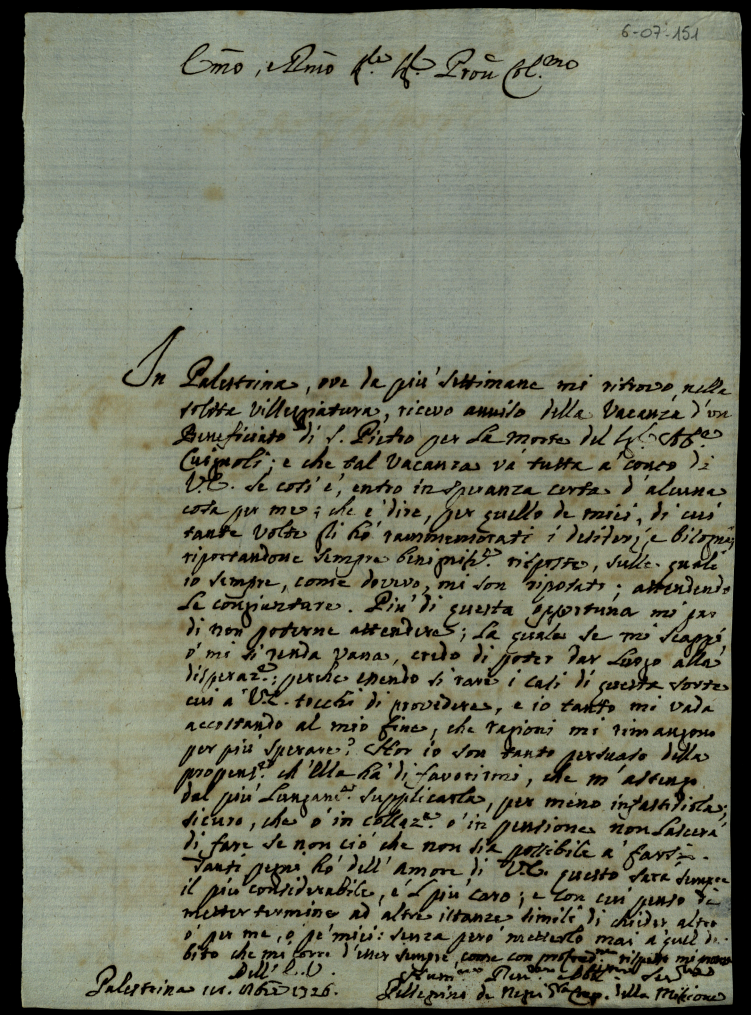 6-07-151
Em̃o, e Rm̃o Sig.re Sig.re Proñ Col.mo
In Palestrina, ove da più settimane mi ritrovo, nella
solita villeggiatura, ricevo avviso della Vacanza d'un
Beneficiato di S. Pietro per la morte del Sig.r Ab.e
Cuignoli; e che tal Vacanza và tutta a' conto di
V.E. Se così è, entro in speranza certa d'alcuna
cosa per me; che è dire, per quello de miei, di cui
tante volte gli hò rammemorati i desiderj e bisogni,
riportandone sempre benigniss.e risposte, sulle quali
io sempre, come dovevo, mi son riposato; attendendo
le congiunture. Più di questa opportuna mi par
di non poterne attendere; la quale se mi scappi
ò mi si renda vana, credo di poter dar luogo alla
disperaz.e; perche essendo sì rari i casi di questa sorte
cui a' V.E. tocchi di provedere, e io tanto mi vada
accostando al mio fine, che ragioni mi rimangono
per più sperare? Hor io son tanto persuaso della
propens.e ch'Ella hà di favorirmi, che m'astengo
dal più lungam.te supplicarla, per meno infastidirla;
sicuro, che ò in collaz.e ò in pensione non lascerà
di fare se non ciò che non sia possibile a' farsi.
Tanti pegni hò dell'amore di V.E. questo sarà sempre
il più considerabile, e 'l più caro; e con cui penso di
metter termine ad altre istanze simili di chieder altro
ò per me, ò pe' miei: senza però metterlo mai a quel de-
bito che mi corre d'esser sempre, come con profond.mo rispetto mi
Dell'E.V.
Palestrina 1726.
Pellegrino de Negri della Missione